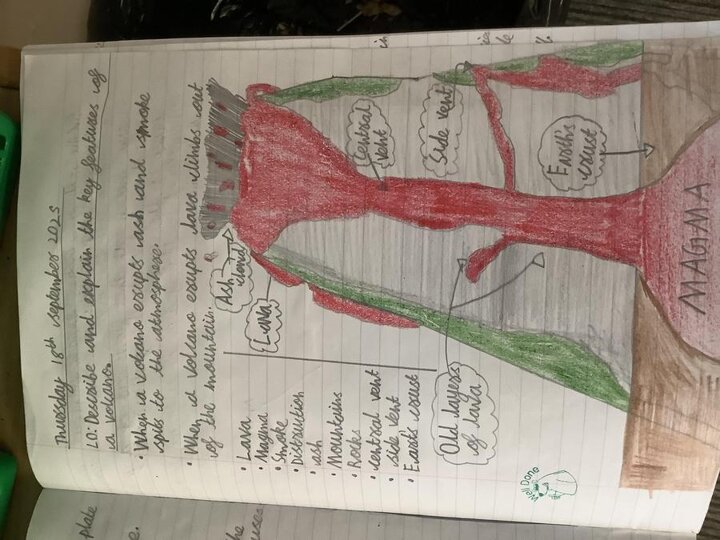 Thursday 18th september 2025
LO: Describe and explain the key features of
a volcano.
• When a volcano erupts ash and smoke
spits to the atmosphere.
• When a volcano erupts lava climbs out
of the mountain.
• Lava
• Magma
• Smoke
• Distruction
• ash
• Mountains
• Rocks
• central vent
• side vent
• Earts crust
Ash
cloud
Lava
Central
vent
Side vent
Earth's
crust
Old layers
of lava
MAGMA
Well Done
plate
e.
the
uses